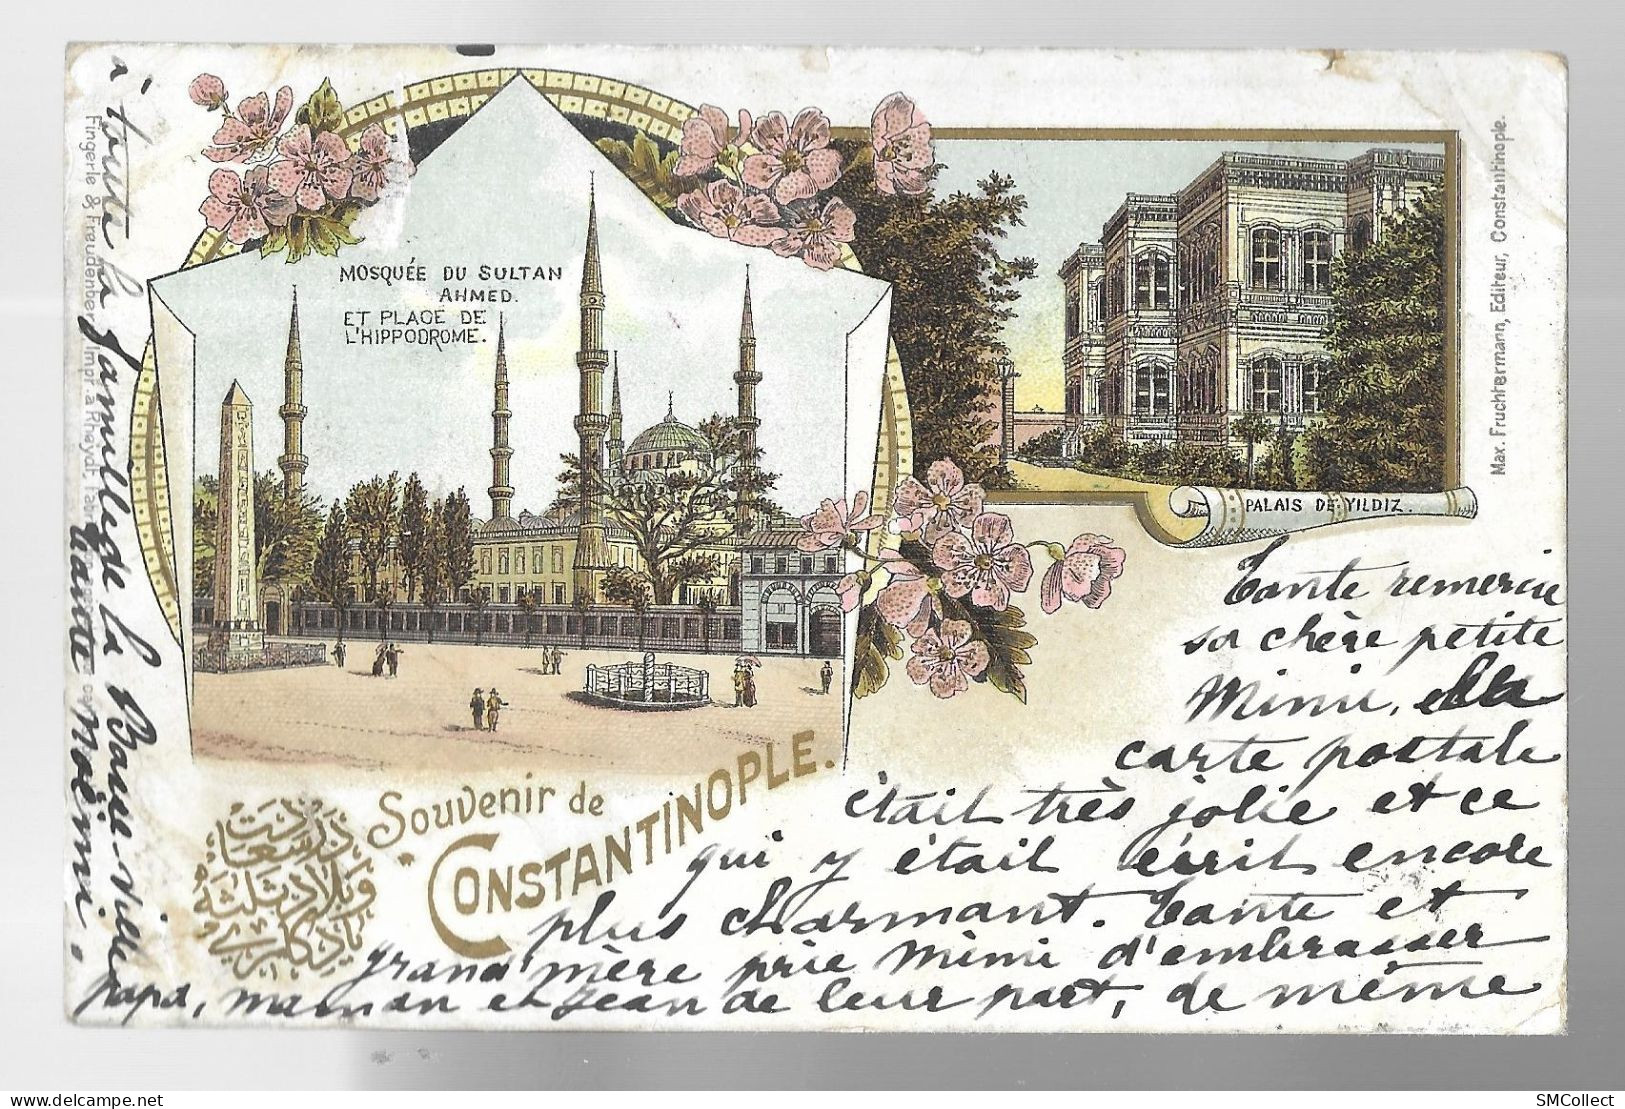 MOSQUÉE DU SULTAN
AHMED.
ET PLACE DE
L'HIPPODROME.
PALAIS DE YILDIZ.
Max. Fruchtermann, Editeur, Constantinople.
Fingerle & Freudenberg, Impr. à Rheydt
Souvenir de
CONSTANTINOPLE.
در سعادت
و بلاد ثلثه
يادكاری
Tante remercie
sa chère petite
Mimi, la
carte postale
était très jolie et ce
qui y était écrit encore
plus charmant. Tante et
grand'mère prie Mimi d'embrasser
papa, maman et Jean de leur part, de même
toute la famille de la Basse-ville
tante Noëmi.
SMCollect